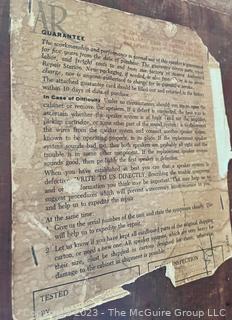 AR
GUARANTEE
The workmanship and performance in normal use of this speaker is guaranteed
for five years from the date of purchase. The guarantee covers parts, repair
labor, and freight costs to and from our factory or nearest Authorized
Repair Station. New packaging, if needed, is also free. There is no
charge, nor is anyone authorized to charge for
The attached guarantee card should be filled out and returned to the factory
within 10 days of date of purchase.
In Case of Difficulty Under no circumstances should you ever open the
cabinet or remove the speakers. If a defect is suspected, the best way to
ascertain whether the speaker system is at fault (and not the amplifier,
pickup cartridge, or some other part of the sound system) is to disconnect
the wires from the speaker system and connect another speaker system,
known to be operating properly, in its place. If the replacement speaker
system sounds bad too, then both speakers are probably all right and the
trouble is in some other component. If the replacement speaker system
sounds good, then probably the first speaker is defective.
When you have established as best you can that a speaker system is
defective WRITE TO US DIRECTLY, describing the trouble symptoms
and information you think may be important. This may help us to
suggest procedures which will prevent unnecessary inconvenience to you,
and help us to expedite the repair.
At the same time:
Give us the serial number of the unit and state the symptoms clearly. This
will help us to expedite the repair.
2 Let us know if you have kept all cardboard parts of the original shipping
carton, or need a new one. AR speaker systems, which are very heavy for
their size, must be shipped in cartons designed for them, otherwise
damage to the cabinet in shipment is possible.
TESTED
INSPECTION
Copyright 2023
- Miracle Group, LLC